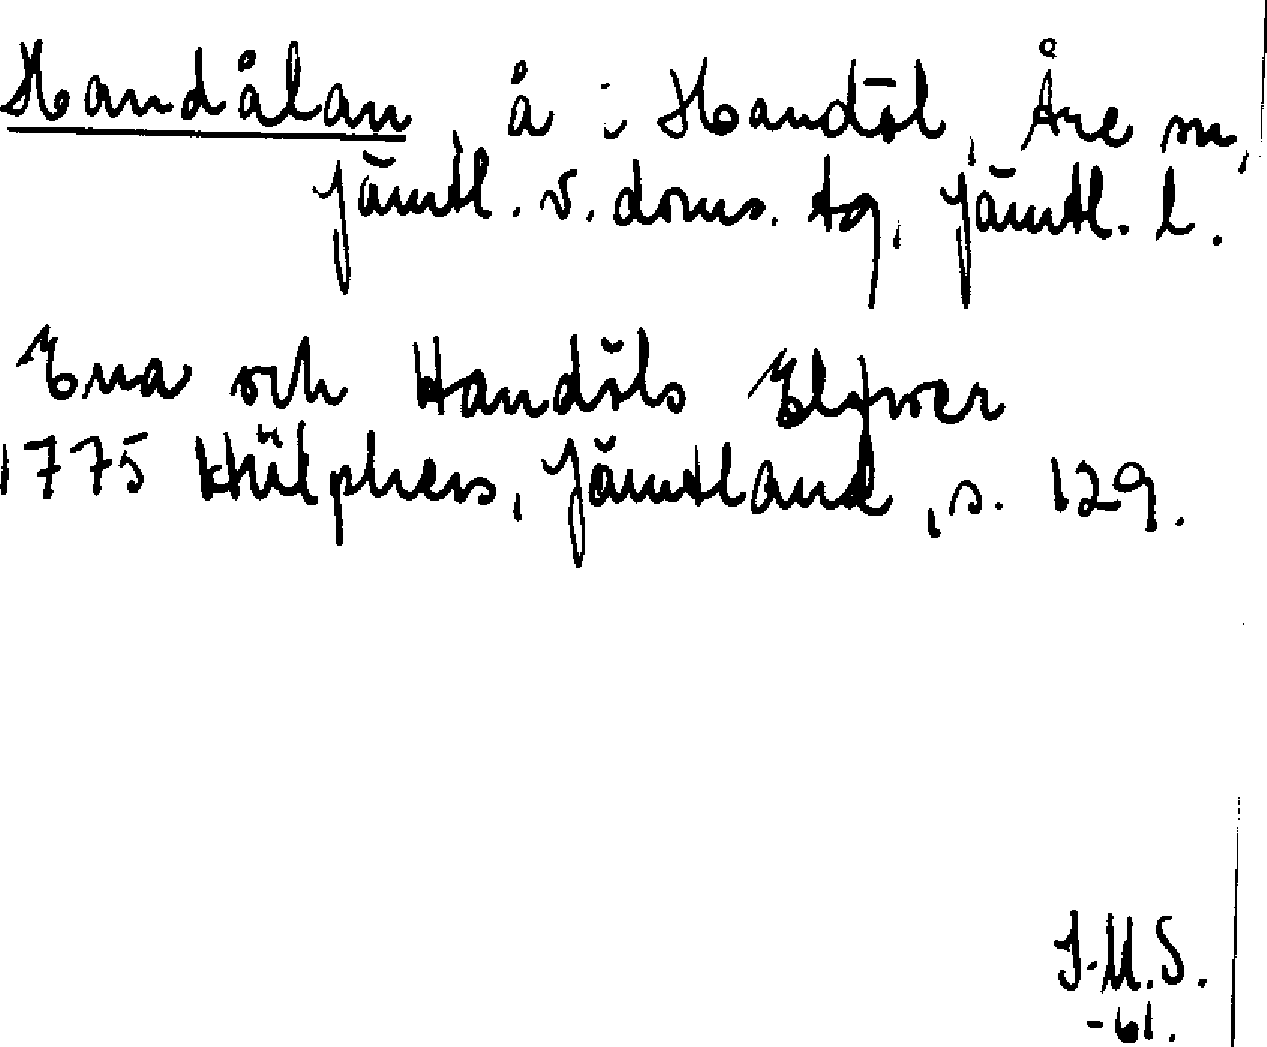 Handålan, å i Handöl, Åre sn,
Jämtl. v. doms. tg, Jämtl. l.
Ena och Handöls Elfwer
1775 Hülphers, Jämtland, s. 129.
I.M.S.
-61.